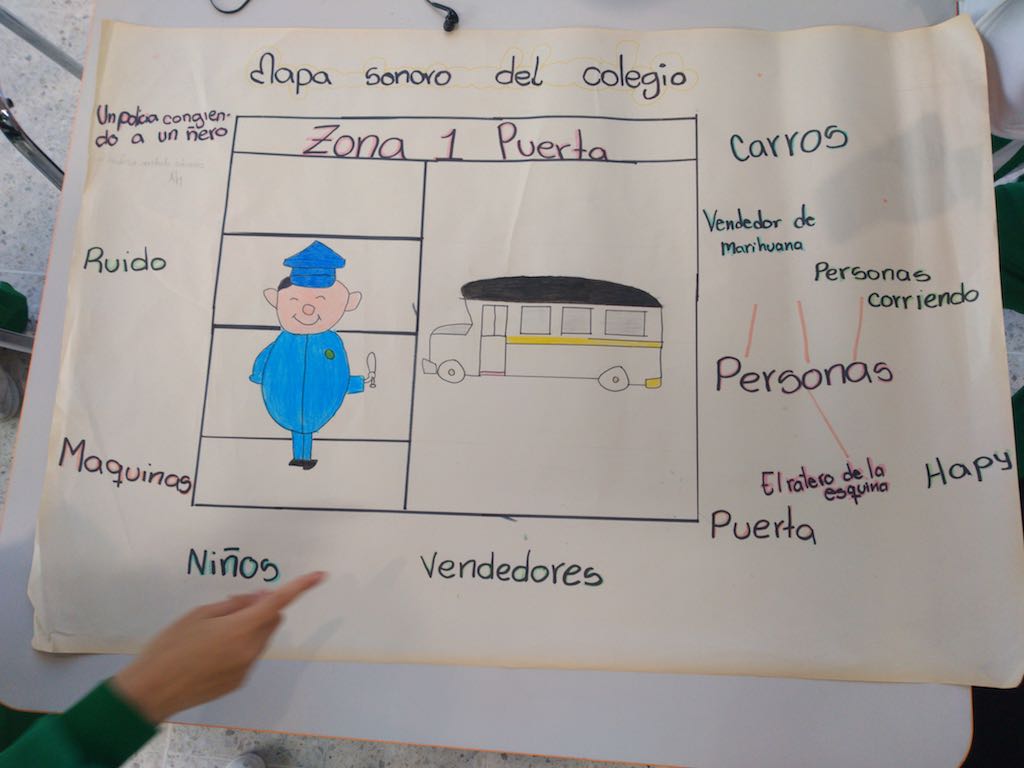 Mapa sonoro del colegio
Un policia congien-
do a un ñero
Zona 1 Puerta
Carros
Vendedor de
Marihuana
Ruido
Personas
corriendo
Personas
Maquinas
El ratero de la
esquina
Hapy
Puerta
Niños
Vendedores